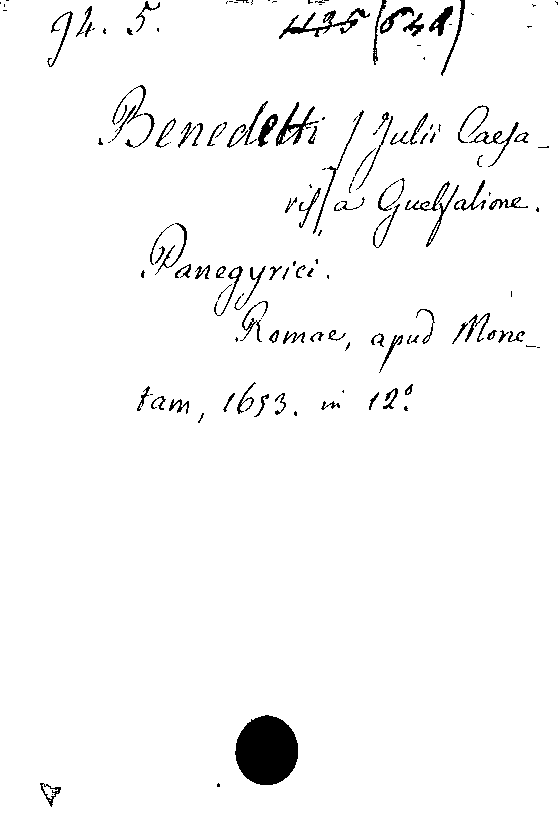 94. 5. 1135 (648)
Benedetti / Julii Caesa-
ris / a Guelfalione.
Panegyrici.
Romae, apud Mone-
tam, 1653. in 12º.